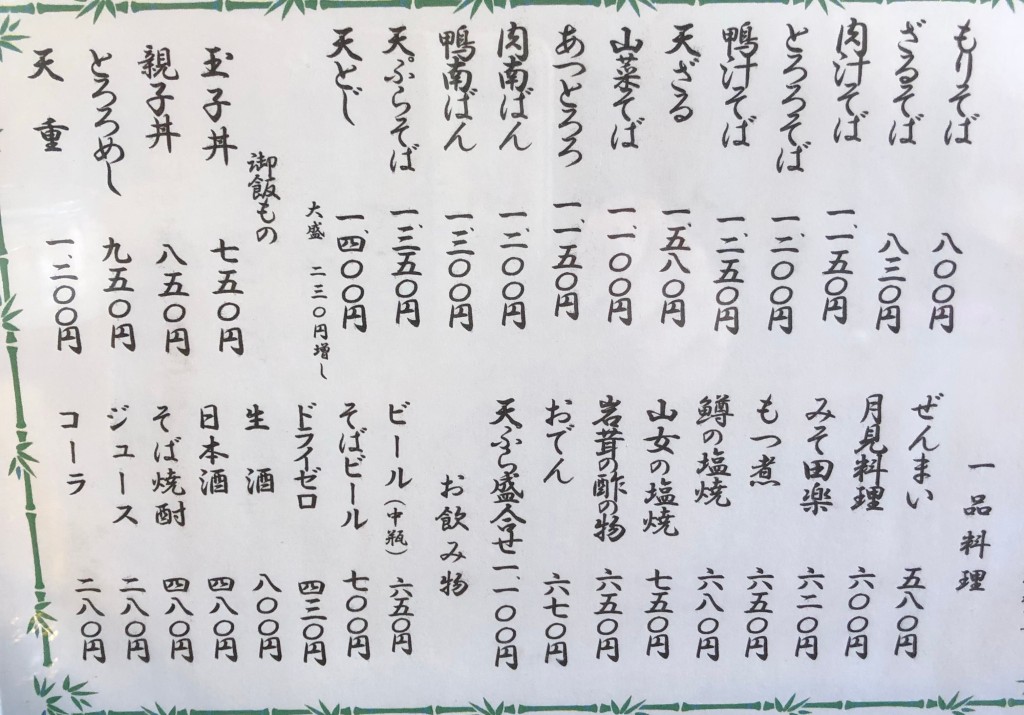 もりそば 八〇〇円
ざるそば 八三〇円
肉汁そば 一、一五〇円
とろろそば 一、二〇〇円
鴨汁そば 一、二五〇円
天ざる 一、五八〇円
山菜そば 一、一〇〇円
あつとろろ 一、一五〇円
肉南ばん 一、二〇〇円
鴨南ばん 一、三〇〇円
天ぷらそば 一、三五〇円
天とじ 一、四〇〇円
大盛 二三〇円増し
御飯もの
玉子丼 七五〇円
親子丼 八五〇円
とろろめし 九五〇円
天重 一、二〇〇円
一品料理
ぜんまい 五八〇円
月見料理 六〇〇円
みそ田楽 六二〇円
もつ煮 六五〇円
鱒の塩焼 六八〇円
山女の塩焼 七五〇円
岩茸の酢の物 六五〇円
おでん 六七〇円
天ぷら盛合せ 一、一〇〇円
お飲み物
ビール(中瓶) 六五〇円
そばビール 七〇〇円
ドライゼロ 四三〇円
生酒 八〇〇円
日本酒 四八〇円
そば焼酎 四八〇円
ジュース 二八〇円
コーラ 二八〇円